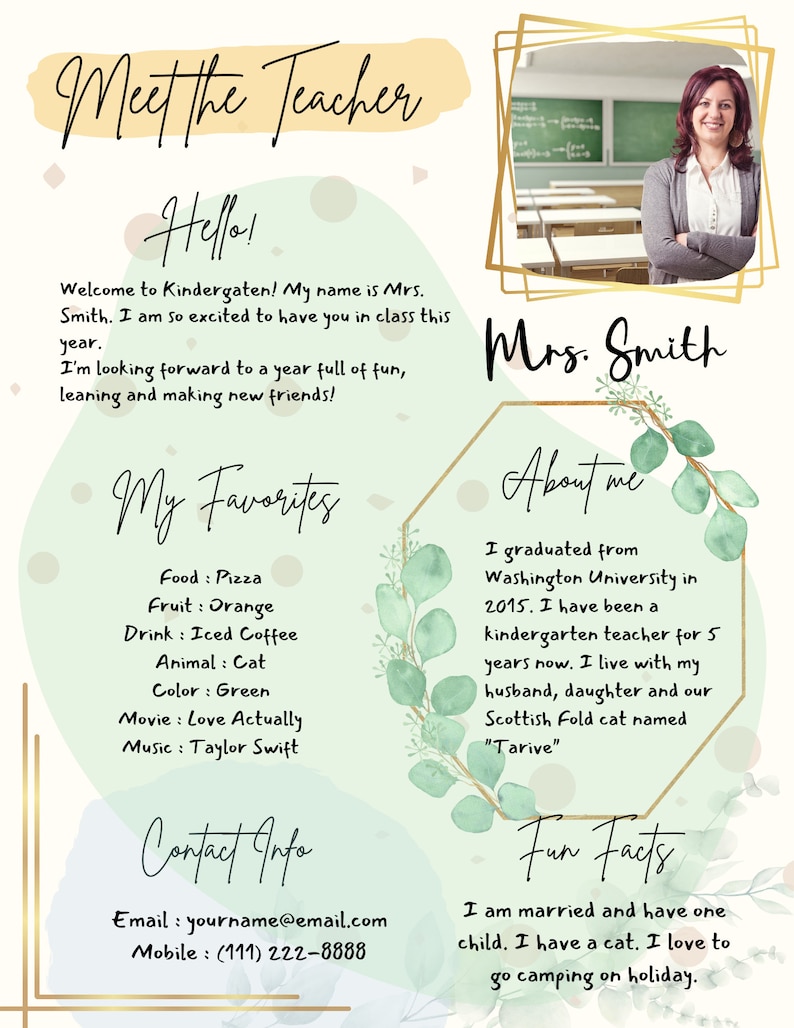 Meet the Teacher
Hello!
Welcome to Kindergaten! My name is Mrs.
Smith. I am so excited to have you in class this
year.
I'm looking forward to a year full of fun,
leaning and making new friends!
Mrs. Smith
My Favorites
Food : Pizza
Fruit : Orange
Drink : Iced Coffee
Animal : Cat
Color : Green
Movie : Love Actually
Music : Taylor Swift
About me
I graduated from
Washington University in
2015. I have been a
kindergarten teacher for 5
years now. I live with my
husband, daughter and our
Scottish Fold cat named
"Tarive"
Contact Info
Email : yourname@email.com
Mobile : (111) 222-8888
Fun Facts
I am married and have one
child. I have a cat. I love to
go camping on holiday.